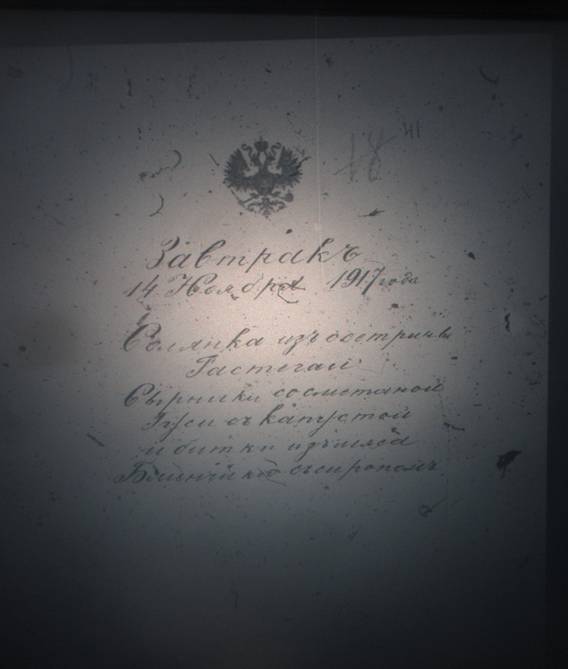 18 III
Завтракъ
14 Ноября 1917 года
Солянка изъ осетрины
Растегаи
Сырники со сметаной
Гуси съ капустой
и битки изъ мяса
Блинчики съ сиропомъ